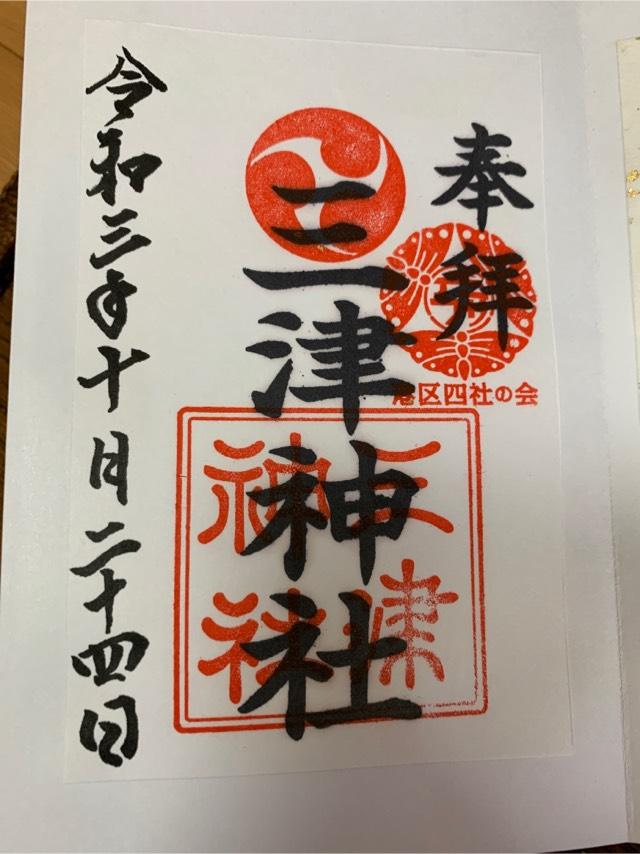 奉拝
港区四社の会
三津神社
三津神社
令和三年十月二十四日